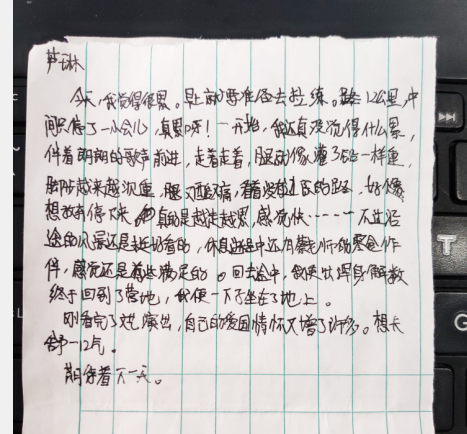 芦琳
今天,我觉得很累。早上就要准备去拉练。 12公里,中
间只停了一小会儿,真累呀!一开始,我还真没觉得什么累,
伴着朗朗的歌声前进,走着走着,腿就像灌了铅一样重,
脚步越来越沉重,腿又酸又痛,看着没有尽头的路,好像
想放弃停下来,真的是越走越累,感觉快……不过沿
途的风景还是挺好看的,休息途中还有老师的零食作
伴,感觉还是满足的。回去途中,我使出浑身解数
终于回到了营地,我便一下子坐在了地上。
刚看完了文艺演出,自己的爱国情怀又增了许多。想长
舒一口气。
期待着下一天。
T